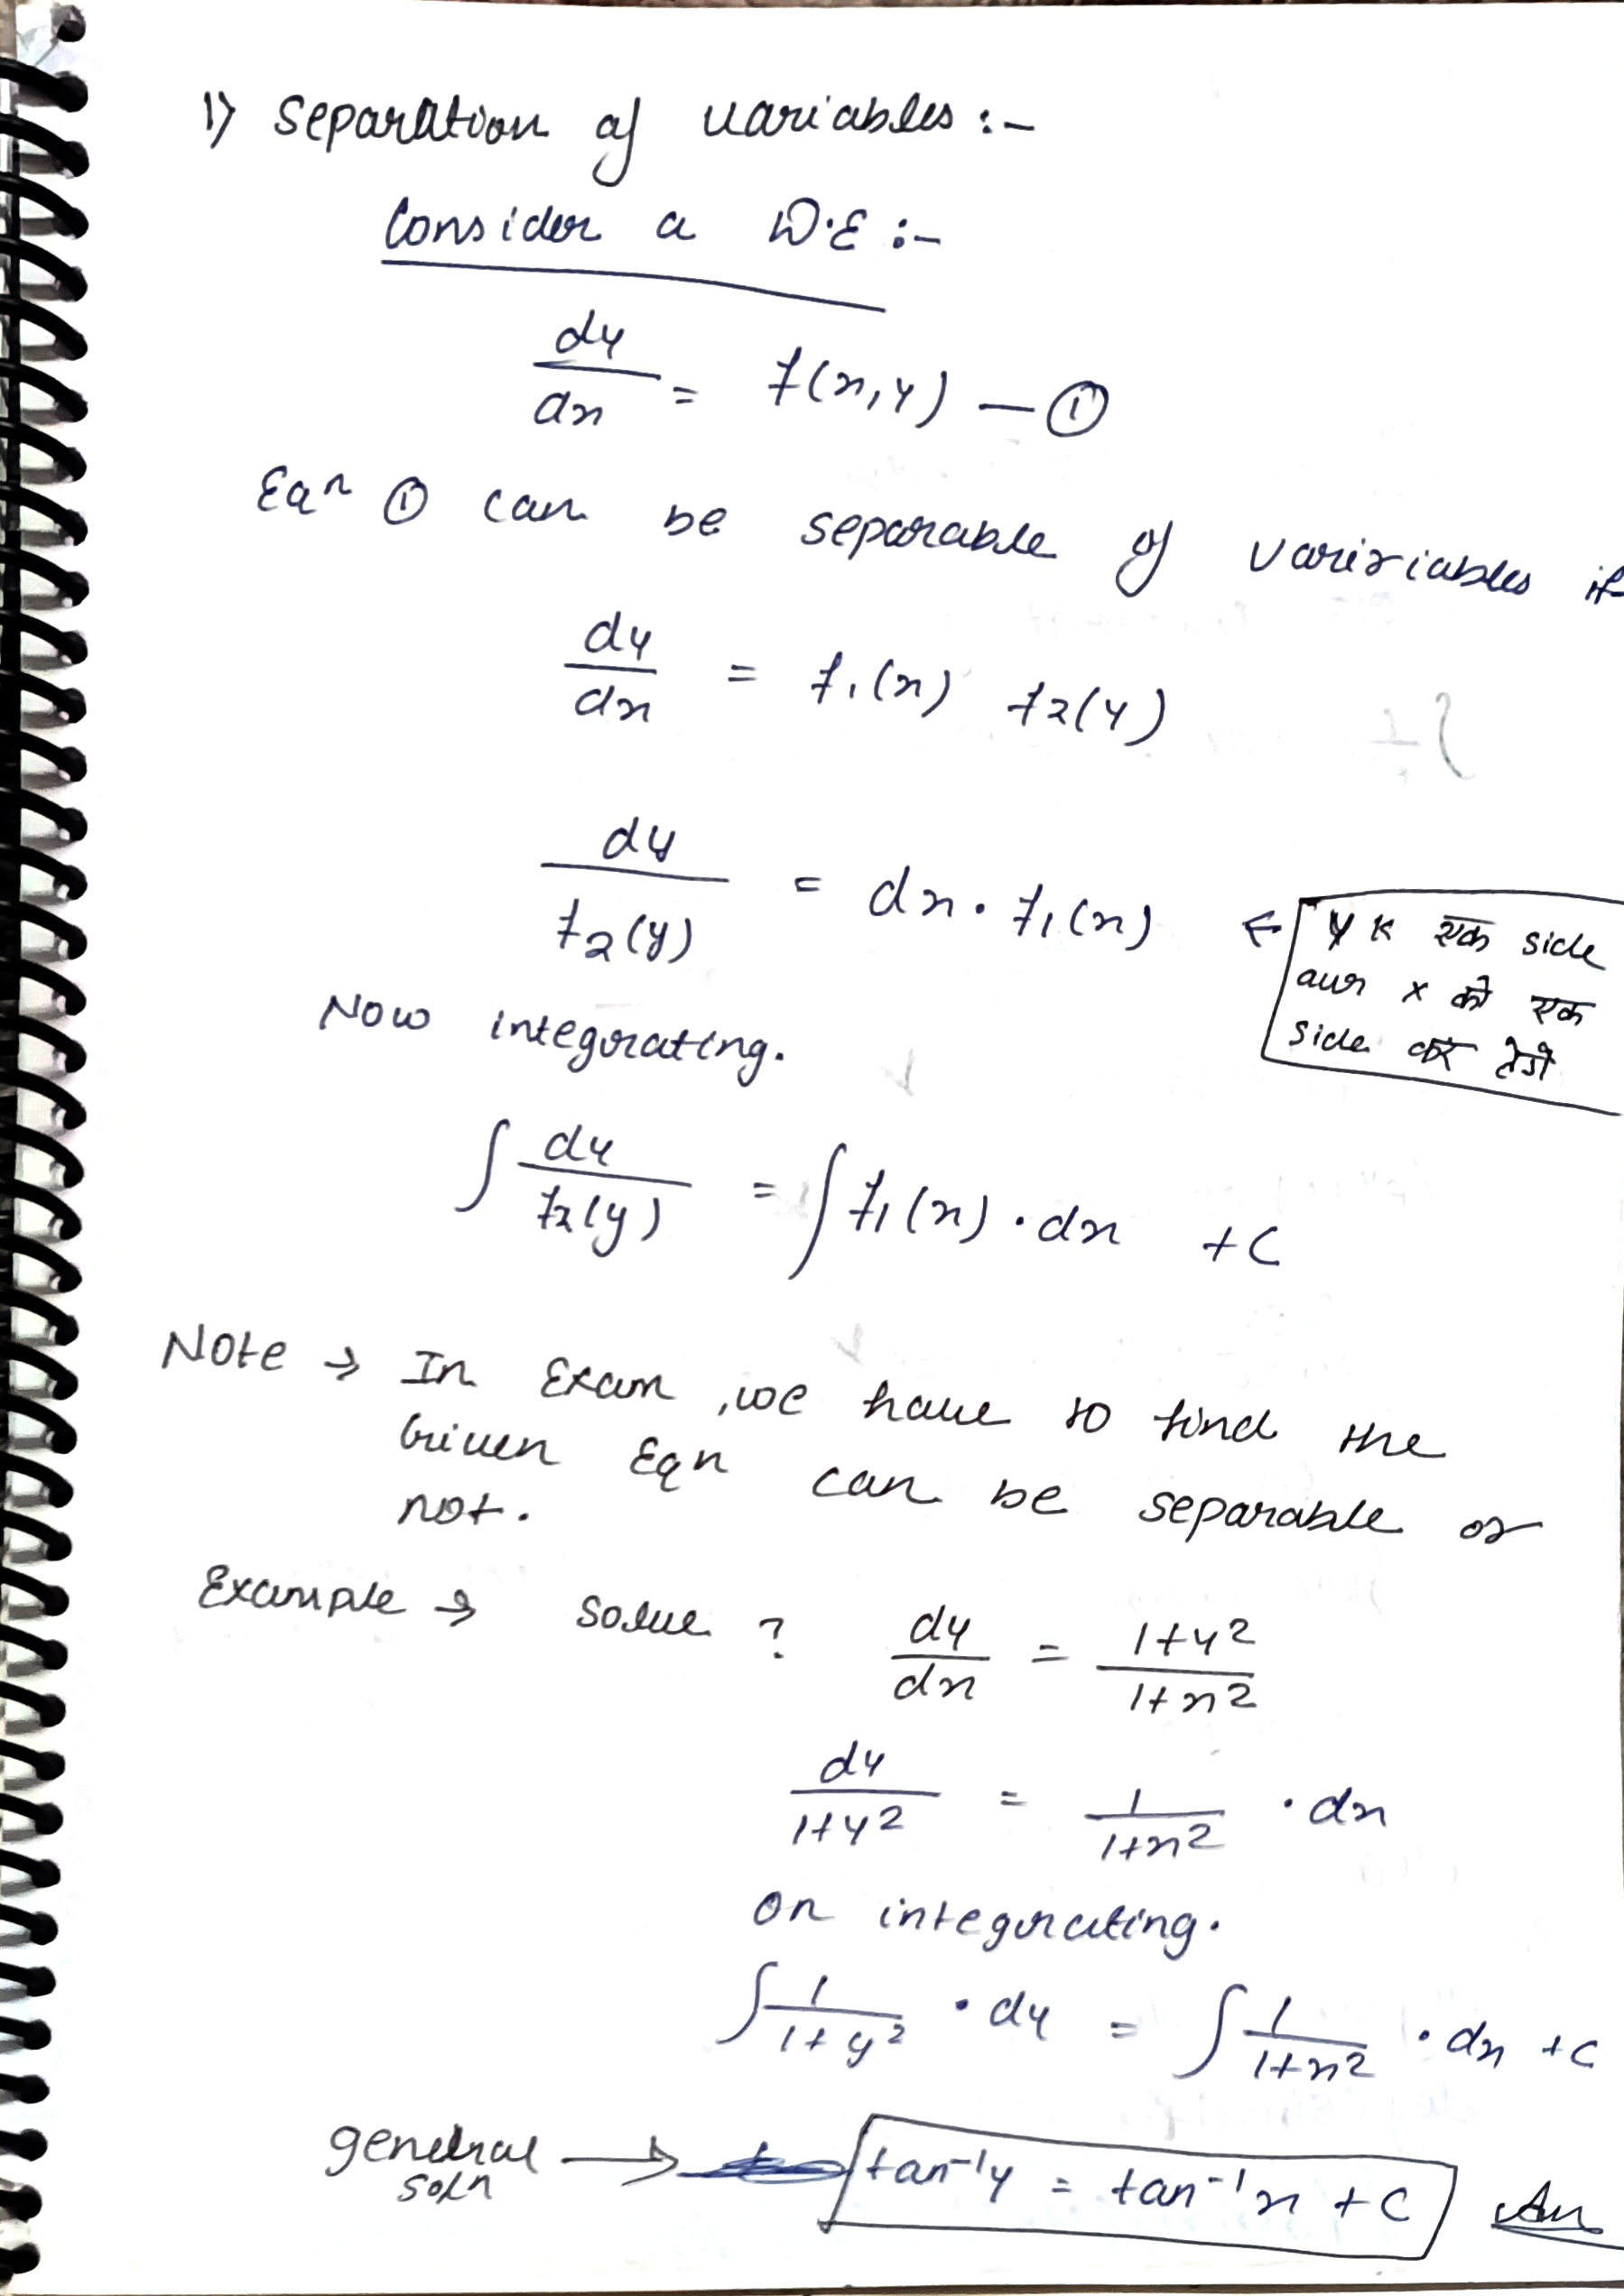 1) Separation of variables :-
Consider a D.E :-
dy/dx = f(x,y) — ①
Eqn ① can be separable of varixiables if
dy/dx = f₁(x) f₂(y)
dy/f₂(y) = dx · f₁(x) ← y K एक side
aur x को एक
side कर लेंगे
Now integrating.
∫ dy/f₂(y) = ∫ f₁(x) · dx + C
Note → In Exam, we have to find the
Given Eqn can be separable or
not.
Example → Solve ? dy/dx = 1+y²/1+x²
dy/1+y² = 1/1+x² · dx
on integrating.
∫ 1/1+y² · dy = ∫ 1/1+x² · dx + C
general soln → tan⁻¹y = tan⁻¹x + C Ans